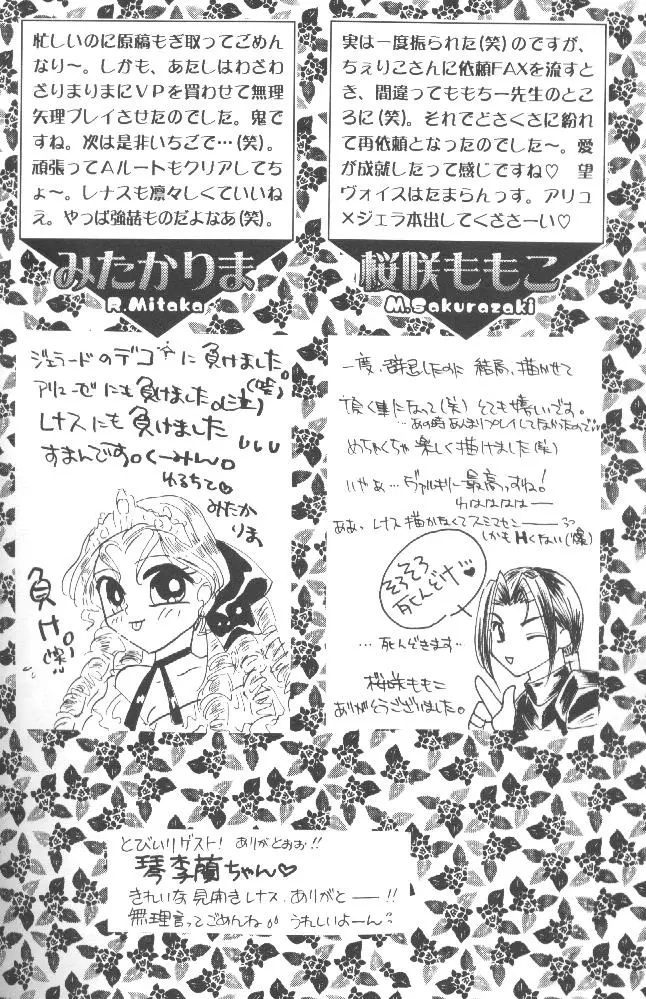 忙しいのに原稿もぎ取ってごめん
なり〜。しかも、あたしはわざわ
ざりまりまにＶＰを買わせて無理
矢理プレイさせたのでした。鬼で
すね。次は是非いちごで…(笑)。
頑張ってＡルートもクリアしてち
ょ〜。レナスも凛々しくていいね
え。やっぱ強喆ものだよなあ(笑)。
みたかりま
R.Mitaka
ジェラードのデコに負けました。(嘘)
アリューゼにも負けました。(泣)
レナスにも負けました
すまんです。くーみん。
ゆるちて♡
みたか
りま
負け。(爆)
実は一度振られた(笑)のですが、
ちぇりこさんに依頼FAXを流すと
き、間違ってももちー先生のとこ
ろに(笑)。それでどさくさに紛れ
て再依頼となったのでした〜。愛
が成就したって感じですね♡ 望
ヴォイスはたまらんっす。アリュ
×ジェラ本出してくださーい♡
桜咲ももこ
M.Sakurazaki
一度、辞退したのに 結局、描かせて
頂く事になって(笑) とても嬉しいです。
…あの時あんまりプレイしてなかったので…
めちゃくちゃ楽しく描けました(笑)
いやぁ…ヴァルキリに最高っすね!
わはははは―
ああ、レナス描かなくてスミマセン――
しかもHくない(爆)
そろそろ
死んどけ♥
…死んどきます…
桜咲ももこ
ありがとうございました。
とびいりゲスト! ありがとおお!!
琴李蘭ちゃん♡
きれいな見開きレナス、ありがと――!!
無理言ってごめんね うれしいよーん